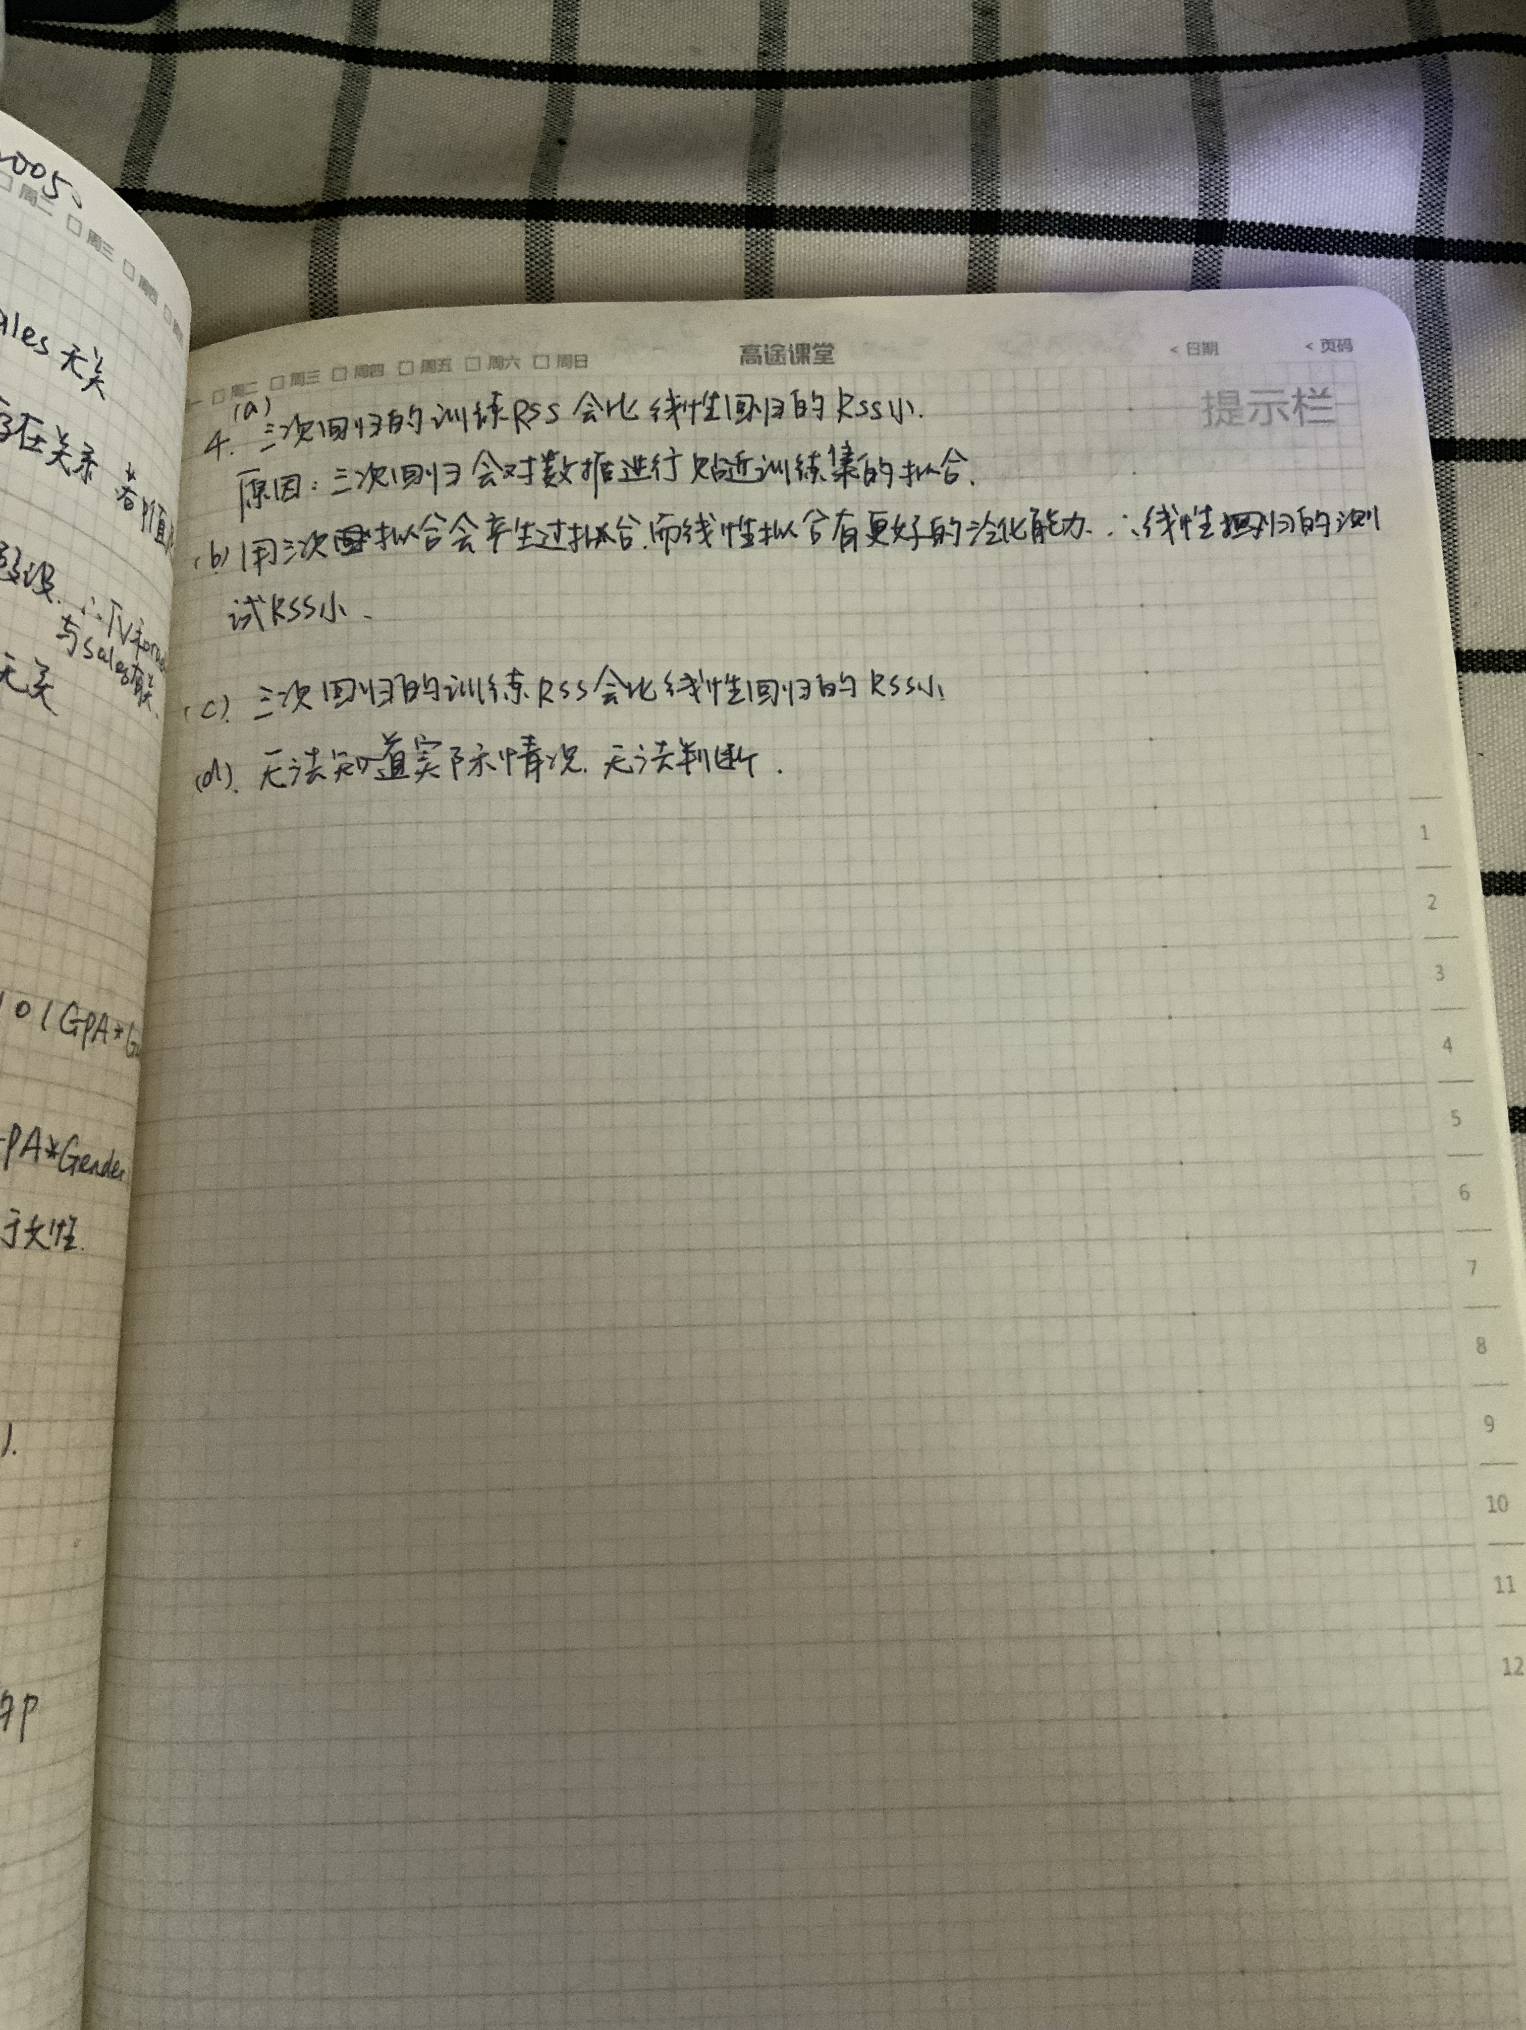 005.
周二 周三 周四
ales 无关
存在关系 若P值
假设. ∴TV和
与sales有关.
无关
101GPA*G
PA*Gender
于女性.
).
的P
周二 周三 周四 周五 周六 周日
高途课堂
< 日期 < 页码
提示栏
4. (a) 三次回归的训练RSS会比线性回归的RSS小.
原因:三次回归会对数据进行贴近训练集的拟合.
(b) 用三次拟合会产生过拟合.而线性拟合有更好的泛化能力.∴线性回归的测
试RSS小.
(c). 三次回归的训练RSS会比线性回归的RSS小
(d). 无法知道实际情况.无法判断.
1
2
3
4
5
6
7
8
9
10
11
12